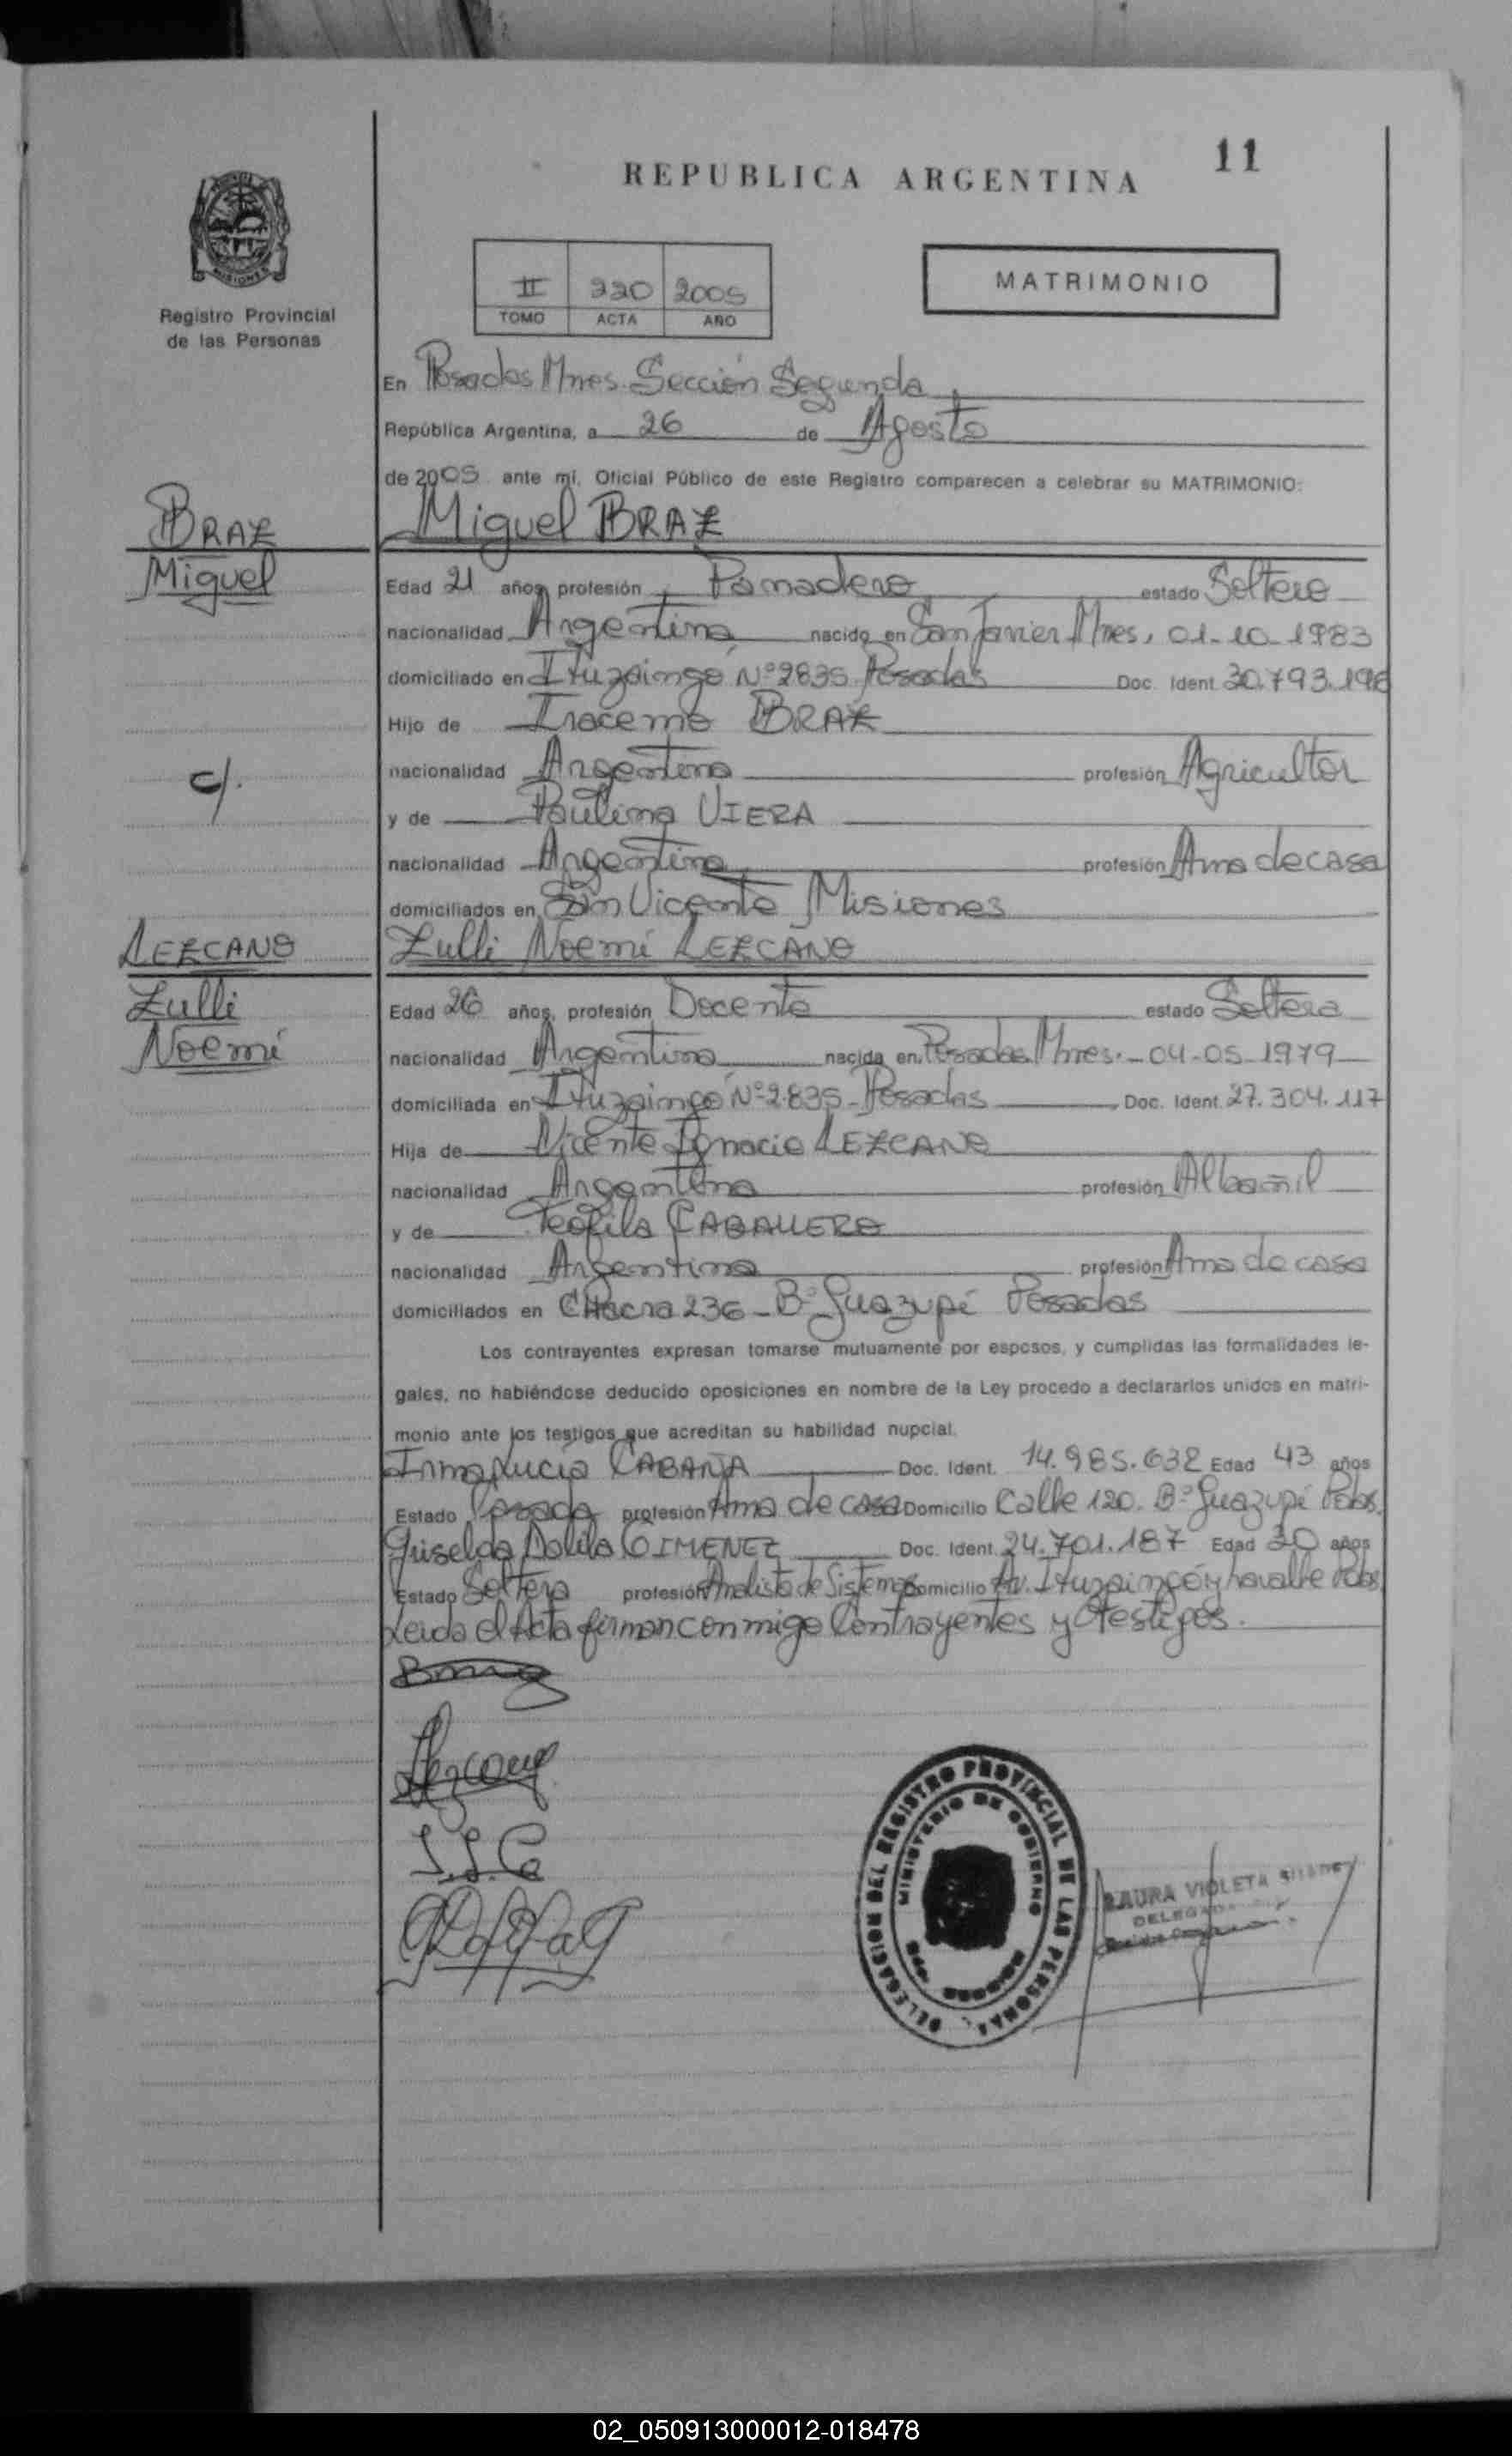 11
REPUBLICA ARGENTINA
MISIONES
Registro Provincial
de las Personas
II 220 2005
TOMO ACTA AÑO
MATRIMONIO
En Posadas Mnes. Sección Segunda
República Argentina, a 26 de Agosto
de 2005 ante mí, Oficial Público de este Registro comparecen a celebrar su MATRIMONIO:
BRAZ Miguel BRAZ
Miguel
Edad 21 años, profesión Panadero estado Soltero
nacionalidad Argentina nacido en San Javier Mnes, 01-10-1983
domiciliado en Ituzaingo Nº 2835 Posadas Doc. Ident. 30.793.196
Hijo de Iracema BRAZ
nacionalidad Argentina profesión Agricultor
c/.
y de Paulina VIERA
nacionalidad Argentina profesión Ama de casa
domiciliados en San Vicente Misiones
LEZCANO Zulli Noemí LEZCANO
Zulli
Noemí
Edad 26 años, profesión Docente estado Soltera
nacionalidad Argentina nacida en Posadas Mnes. - 04-05-1979
domiciliada en Ituzaingó Nº 2.835 - Posadas Doc. Ident. 27.304.117
Hija de Vicente Ignacio LEZCANO
nacionalidad Argentina profesión Albañil
y de Teofila CABALLERO
nacionalidad Argentina profesión Ama de casa
domiciliados en CHacra 236 - Bº Guazupí Posadas
Los contrayentes expresan tomarse mutuamente por esposos, y cumplidas las formalidades le-
gales, no habiéndose deducido oposiciones en nombre de la Ley procedo a declararlos unidos en matri-
monio ante los testigos que acreditan su habilidad nupcial.
Irma Lucia CABAÑA Doc. Ident. 14.985.632 Edad 43 años
Estado Casada profesión Ama de casa Domicilio Calle 120. Bº Guazupí Pdas.
Griselda Dalila GIMENEZ Doc. Ident. 24.701.187 Edad 30 años
Estado Soltera profesión Analista de Sistemas Domicilio Av. Ituzaingó y Lavalle Pdas.
Leida el Acta firman conmigo Contrayentes y Testigos.
Lezcano
I.L.C
DELEGACION DEL REGISTRO PROVINCIAL DE LAS PERSONAS
MINISTERIO DE GOBIERNO
LAURA VIOLETA
DELEGADA
02_050913000012-018478